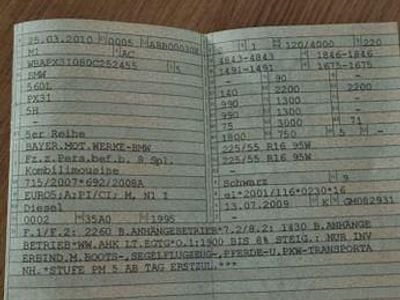 25.03.2010 0005
M1 AC
5
BMW
560L
PX31
5H
-
5er Reihe
BAYER.MOT.WERKE-BMW
Fz.z.Pers.bef.b. 8 Spl.
Kombilimousine
715/2007*692/2008A
EURO5;A:PI/CI; M, N1 I
Diesel
0002 35A0 1995
1 120/4000 220
4843-4843 1846-1846
1491-1491 1675-1675
- 90 -
140 2200 2200
990 1300 -
990 1300 -
75 3000 71
1800 750 5 -
225/55 R16 95W
225/55 R16 95W
-
Schwarz 9
e1*2001/116*0230*16
13.07.2009 K
F.1/F.2: 2260 B.ANHÄNGEBETRIEB*7.2/8.2: 1430 B.ANHÄNGE
BETRIEB*WW.AHK LT.EGTG*O.1:1900 BIS 8% STEIG.: NUR INV
ERBIND.M.BOOTS-,SEGELFLUGZEUG-,PFERDE-U.PKW-TRANSPORTA
NH.*STUFE PM 5 AB TAG ERSTZUL.***